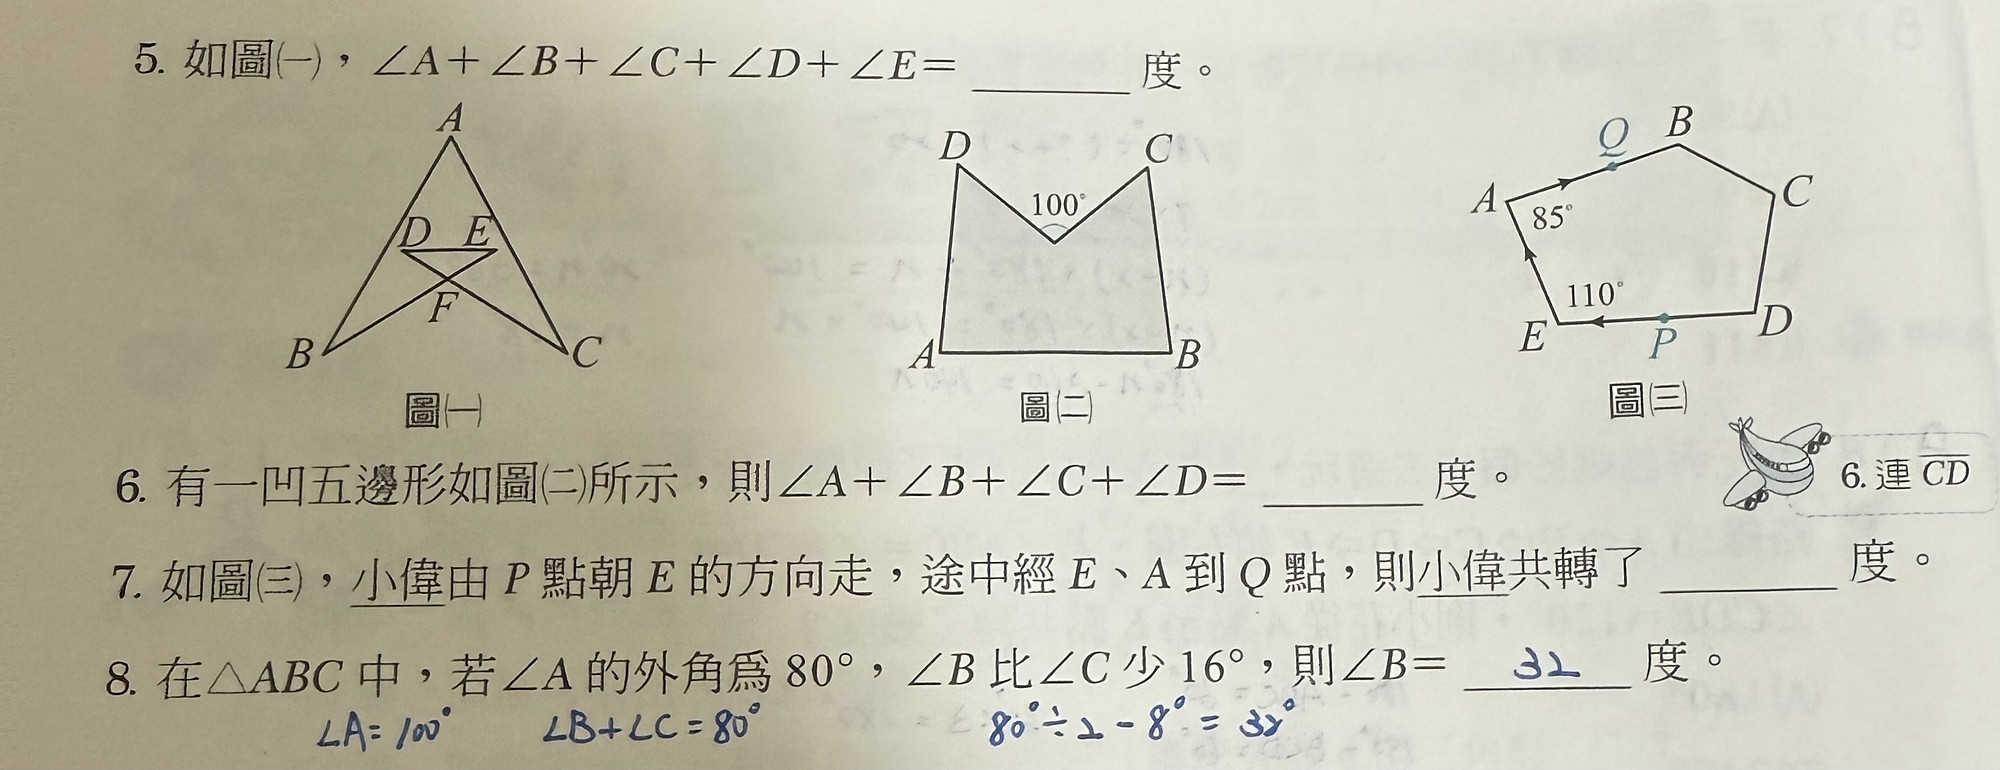 5. 如圖㈠，∠A＋∠B＋∠C＋∠D＋∠E＝______度。
A
D E
F
B C
圖㈠
D C
100°
A B
圖㈡
Q B
A C
85°
110°
E P D
圖㈢
6. 有一凹五邊形如圖㈡所示，則∠A＋∠B＋∠C＋∠D＝______度。
6. 連 C̅D̅
7. 如圖㈢，小偉由 P 點朝 E 的方向走，途中經 E、A 到 Q 點，則小偉共轉了______度。
8. 在△ABC 中，若∠A 的外角爲 80°，∠B 比∠C 少 16°，則∠B＝ 32 度。
∠A=100° ∠B+∠C=80° 80°÷2-8°=32°